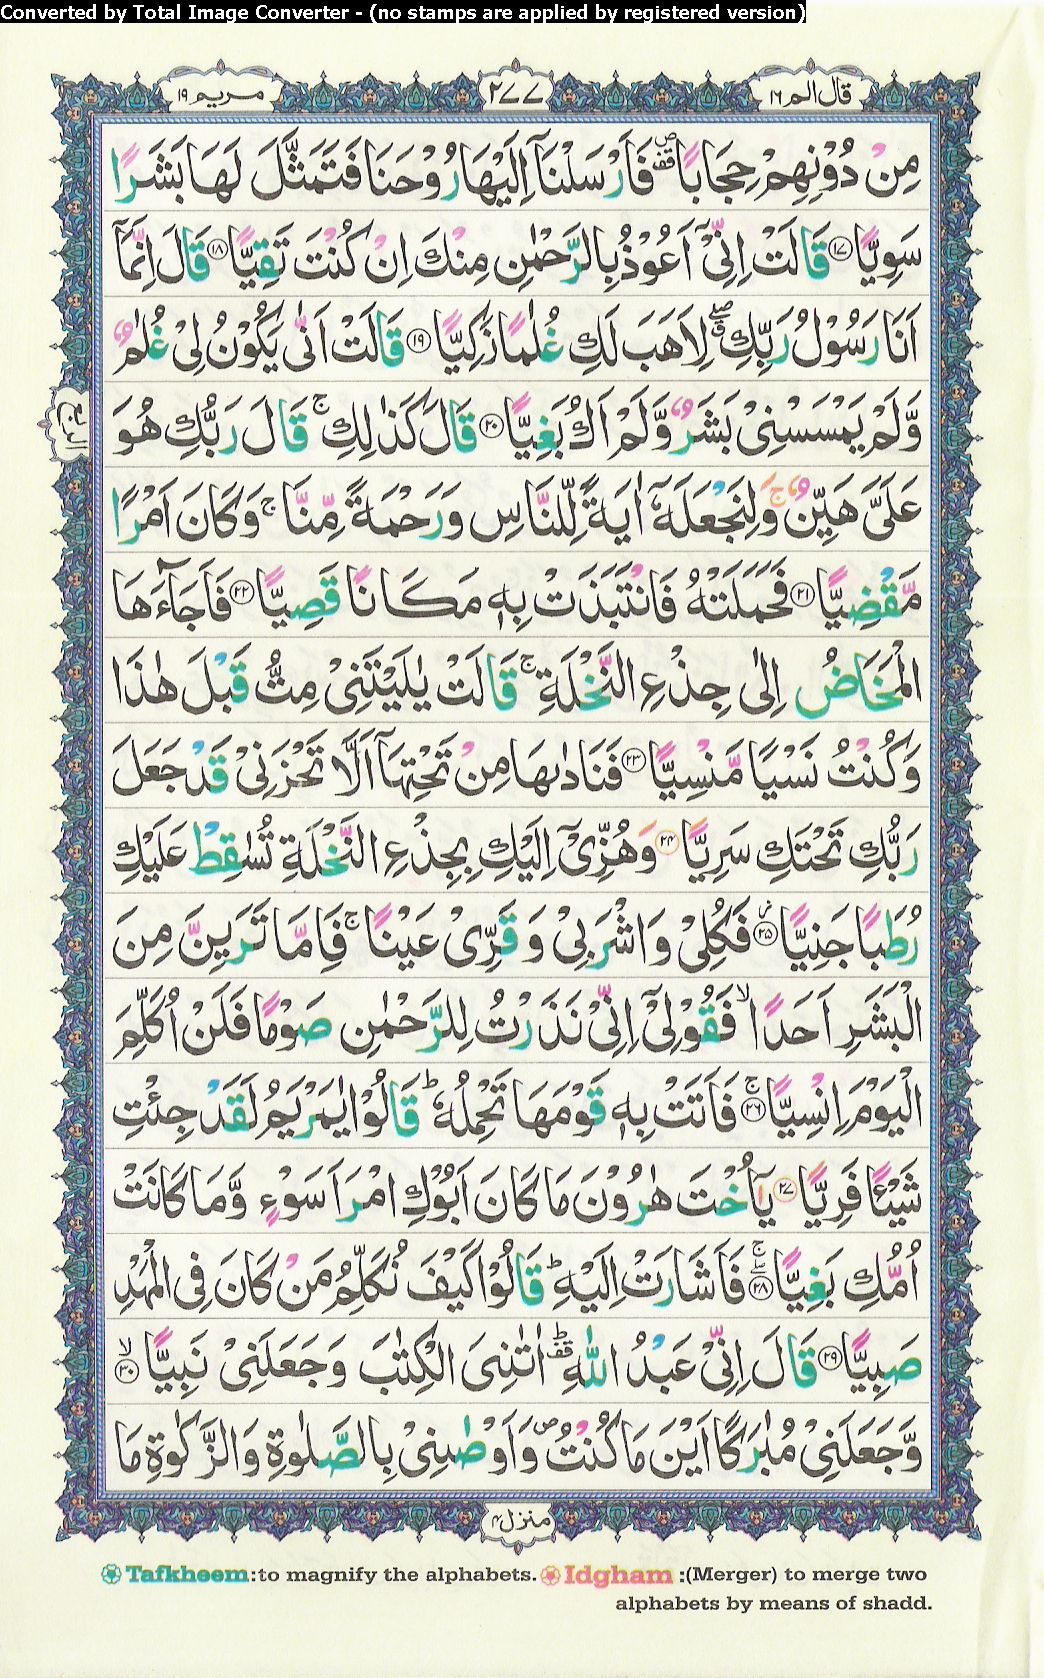 Converted by Total Image Converter - (no stamps are applied by registered version)
قال الم ١٦ ٢٧٧ مريم ١٩
مِنْ دُوْنِهِمْ حِجَابًا ۪ۖ فَاَرْسَلْنَاۤ اِلَيْهَا رُوْحَنَا فَتَمَثَّلَ لَهَا بَشَرًا
سَوِيًّا ﴿١٧﴾ قَالَتْ اِنِّيْۤ اَعُوْذُ بِالرَّحْمٰنِ مِنْكَ اِنْ كُنْتَ تَقِيًّا ﴿١٨﴾ قَالَ اِنَّمَاۤ
اَنَا رَسُوْلُ رَبِّكِ ۖۗ لِاَهَبَ لَكِ غُلٰمًا زَكِيًّا ﴿١٩﴾ قَالَتْ اَنّٰى يَكُوْنُ لِيْ غُلٰمٌ
وَّلَمْ يَمْسَسْنِيْ بَشَرٌ وَّلَمْ اَكُ بَغِيًّا ﴿٢٠﴾ قَالَ كَذٰلِكِ ۚ قَالَ رَبُّكِ هُوَ
عَلَيَّ هَيِّنٌ ۚ وَلِنَجْعَلَهٗۤ اٰيَةً لِّلنَّاسِ وَرَحْمَةً مِّنَّا ۚ وَكَانَ اَمْرًا
مَّقْضِيًّا ﴿٢١﴾ فَحَمَلَتْهُ فَانْتَبَذَتْ بِهٖ مَكَانًا قَصِيًّا ﴿٢٢﴾ فَاَجَآءَهَا
الْمَخَاضُ اِلٰى جِذْعِ النَّخْلَةِ ۚ قَالَتْ يٰلَيْتَنِيْ مِتُّ قَبْلَ هٰذَا
وَكُنْتُ نَسْيًا مَّنْسِيًّا ﴿٢٣﴾ فَنَادٰىهَا مِنْ تَحْتِهَاۤ اَلَّا تَحْزَنِيْ قَدْ جَعَلَ
رَبُّكِ تَحْتَكِ سَرِيًّا ﴿٢٤﴾ وَهُزِّيْۤ اِلَيْكِ بِجِذْعِ النَّخْلَةِ تُسٰقِطْ عَلَيْكِ
رُطَبًا جَنِيًّا ﴿٢٥﴾ فَكُلِيْ وَاشْرَبِيْ وَقَرِّيْ عَيْنًا ۚ فَاِمَّا تَرَيِنَّ مِنَ
الْبَشَرِ اَحَدًا ۙ فَقُوْلِيْۤ اِنِّيْ نَذَرْتُ لِلرَّحْمٰنِ صَوْمًا فَلَنْ اُكَلِّمَ
الْيَوْمَ اِنْسِيًّا ﴿٢٦﴾ۚ فَاَتَتْ بِهٖ قَوْمَهَا تَحْمِلُهٗ ؕ قَالُوْا يٰمَرْيَمُ لَقَدْ جِئْتِ
شَيْئًا فَرِيًّا ﴿٢٧﴾ يٰۤاُخْتَ هٰرُوْنَ مَا كَانَ اَبُوْكِ امْرَاَ سَوْءٍ وَّمَا كَانَتْ
اُمُّكِ بَغِيًّا ﴿٢٨﴾ۚۖ فَاَشَارَتْ اِلَيْهِ ؕ قَالُوْا كَيْفَ نُكَلِّمُ مَنْ كَانَ فِي الْمَهْدِ
صَبِيًّا ﴿٢٩﴾ قَالَ اِنِّيْ عَبْدُ اللّٰهِ ؕ۟ اٰتٰىنِيَ الْكِتٰبَ وَجَعَلَنِيْ نَبِيًّا ﴿٣٠﴾ۙ
وَّجَعَلَنِيْ مُبٰرَكًا اَيْنَ مَا كُنْتُ ۪ وَاَوْصٰنِيْ بِالصَّلٰوةِ وَالزَّكٰوةِ مَا
الربع
منزل ٤
Tafkheem:to magnify the alphabets. Idgham :(Merger) to merge two
alphabets by means of shadd.